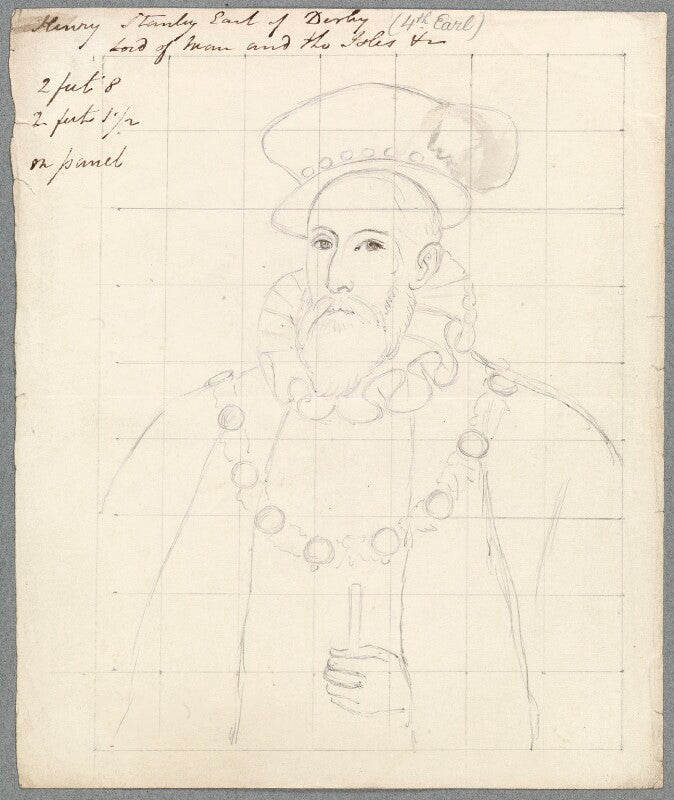 Henry Stanley Earl of Derby (4th Earl)
Lord of Man and the Isles &c
2 feet 8
2 feet 1 1/2
on panel